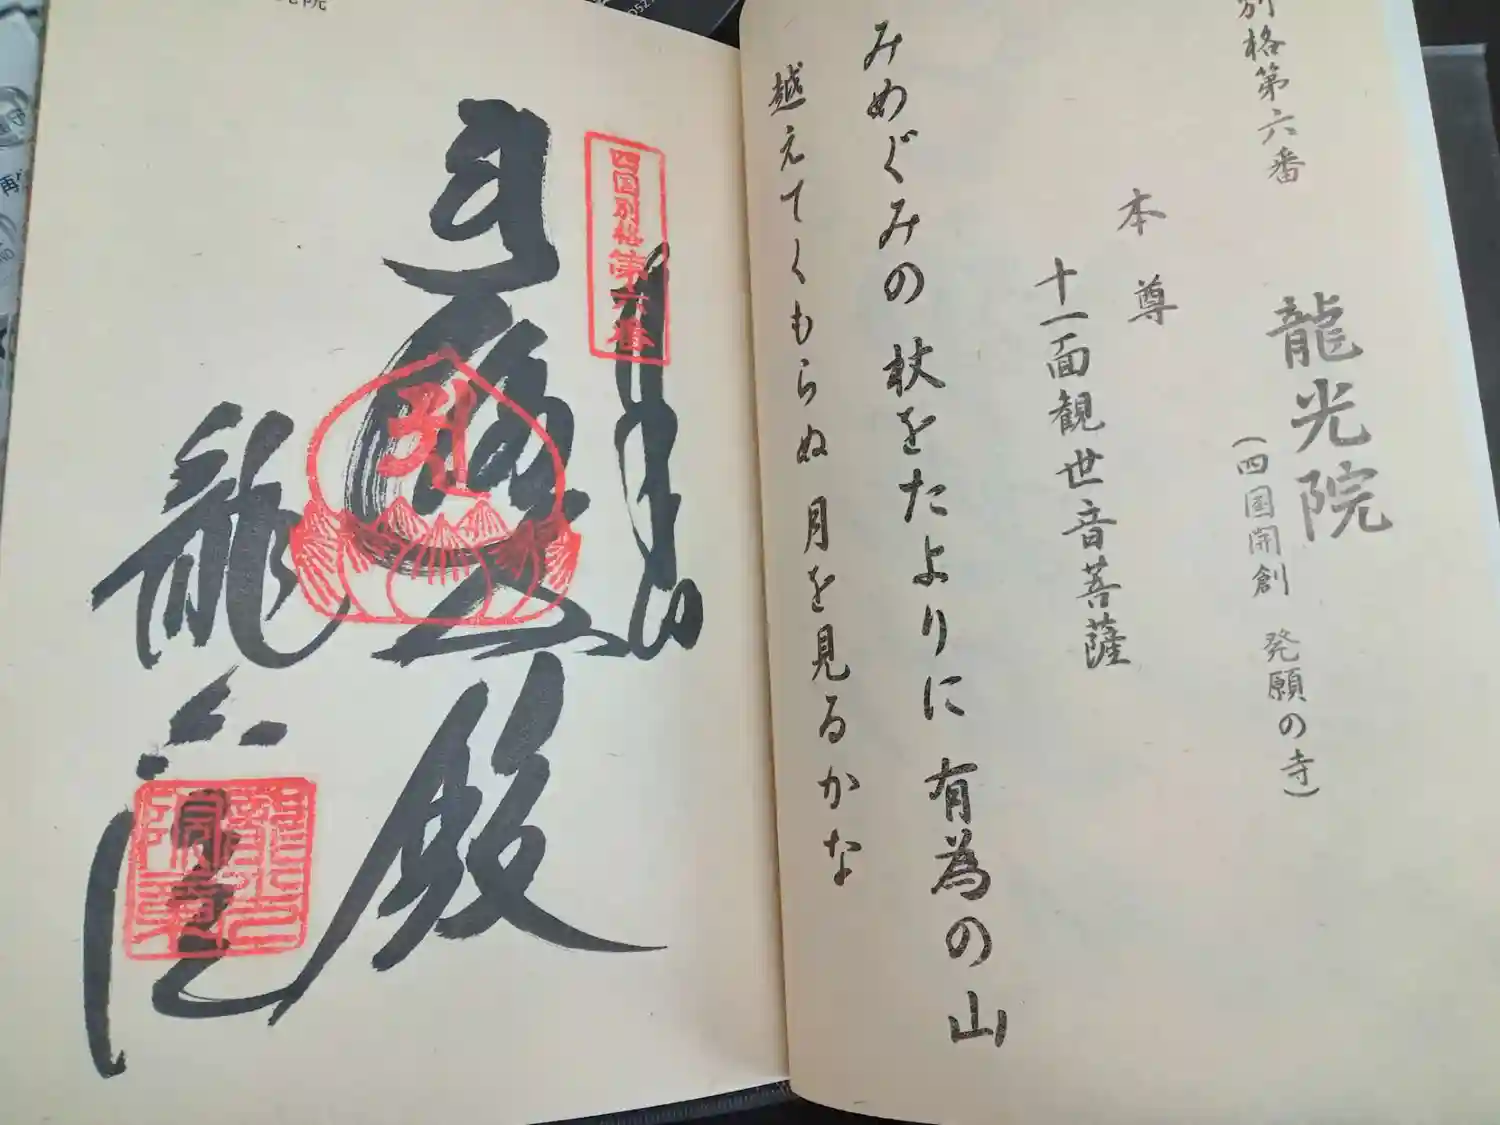 別格第六番
龍光院
(四国開創 発願の寺)
本尊
十一面観世音菩薩
みめぐみの杖をたよりに有為の山
越えてくもらぬ月を見るかな
四国別格第六番
龍光院